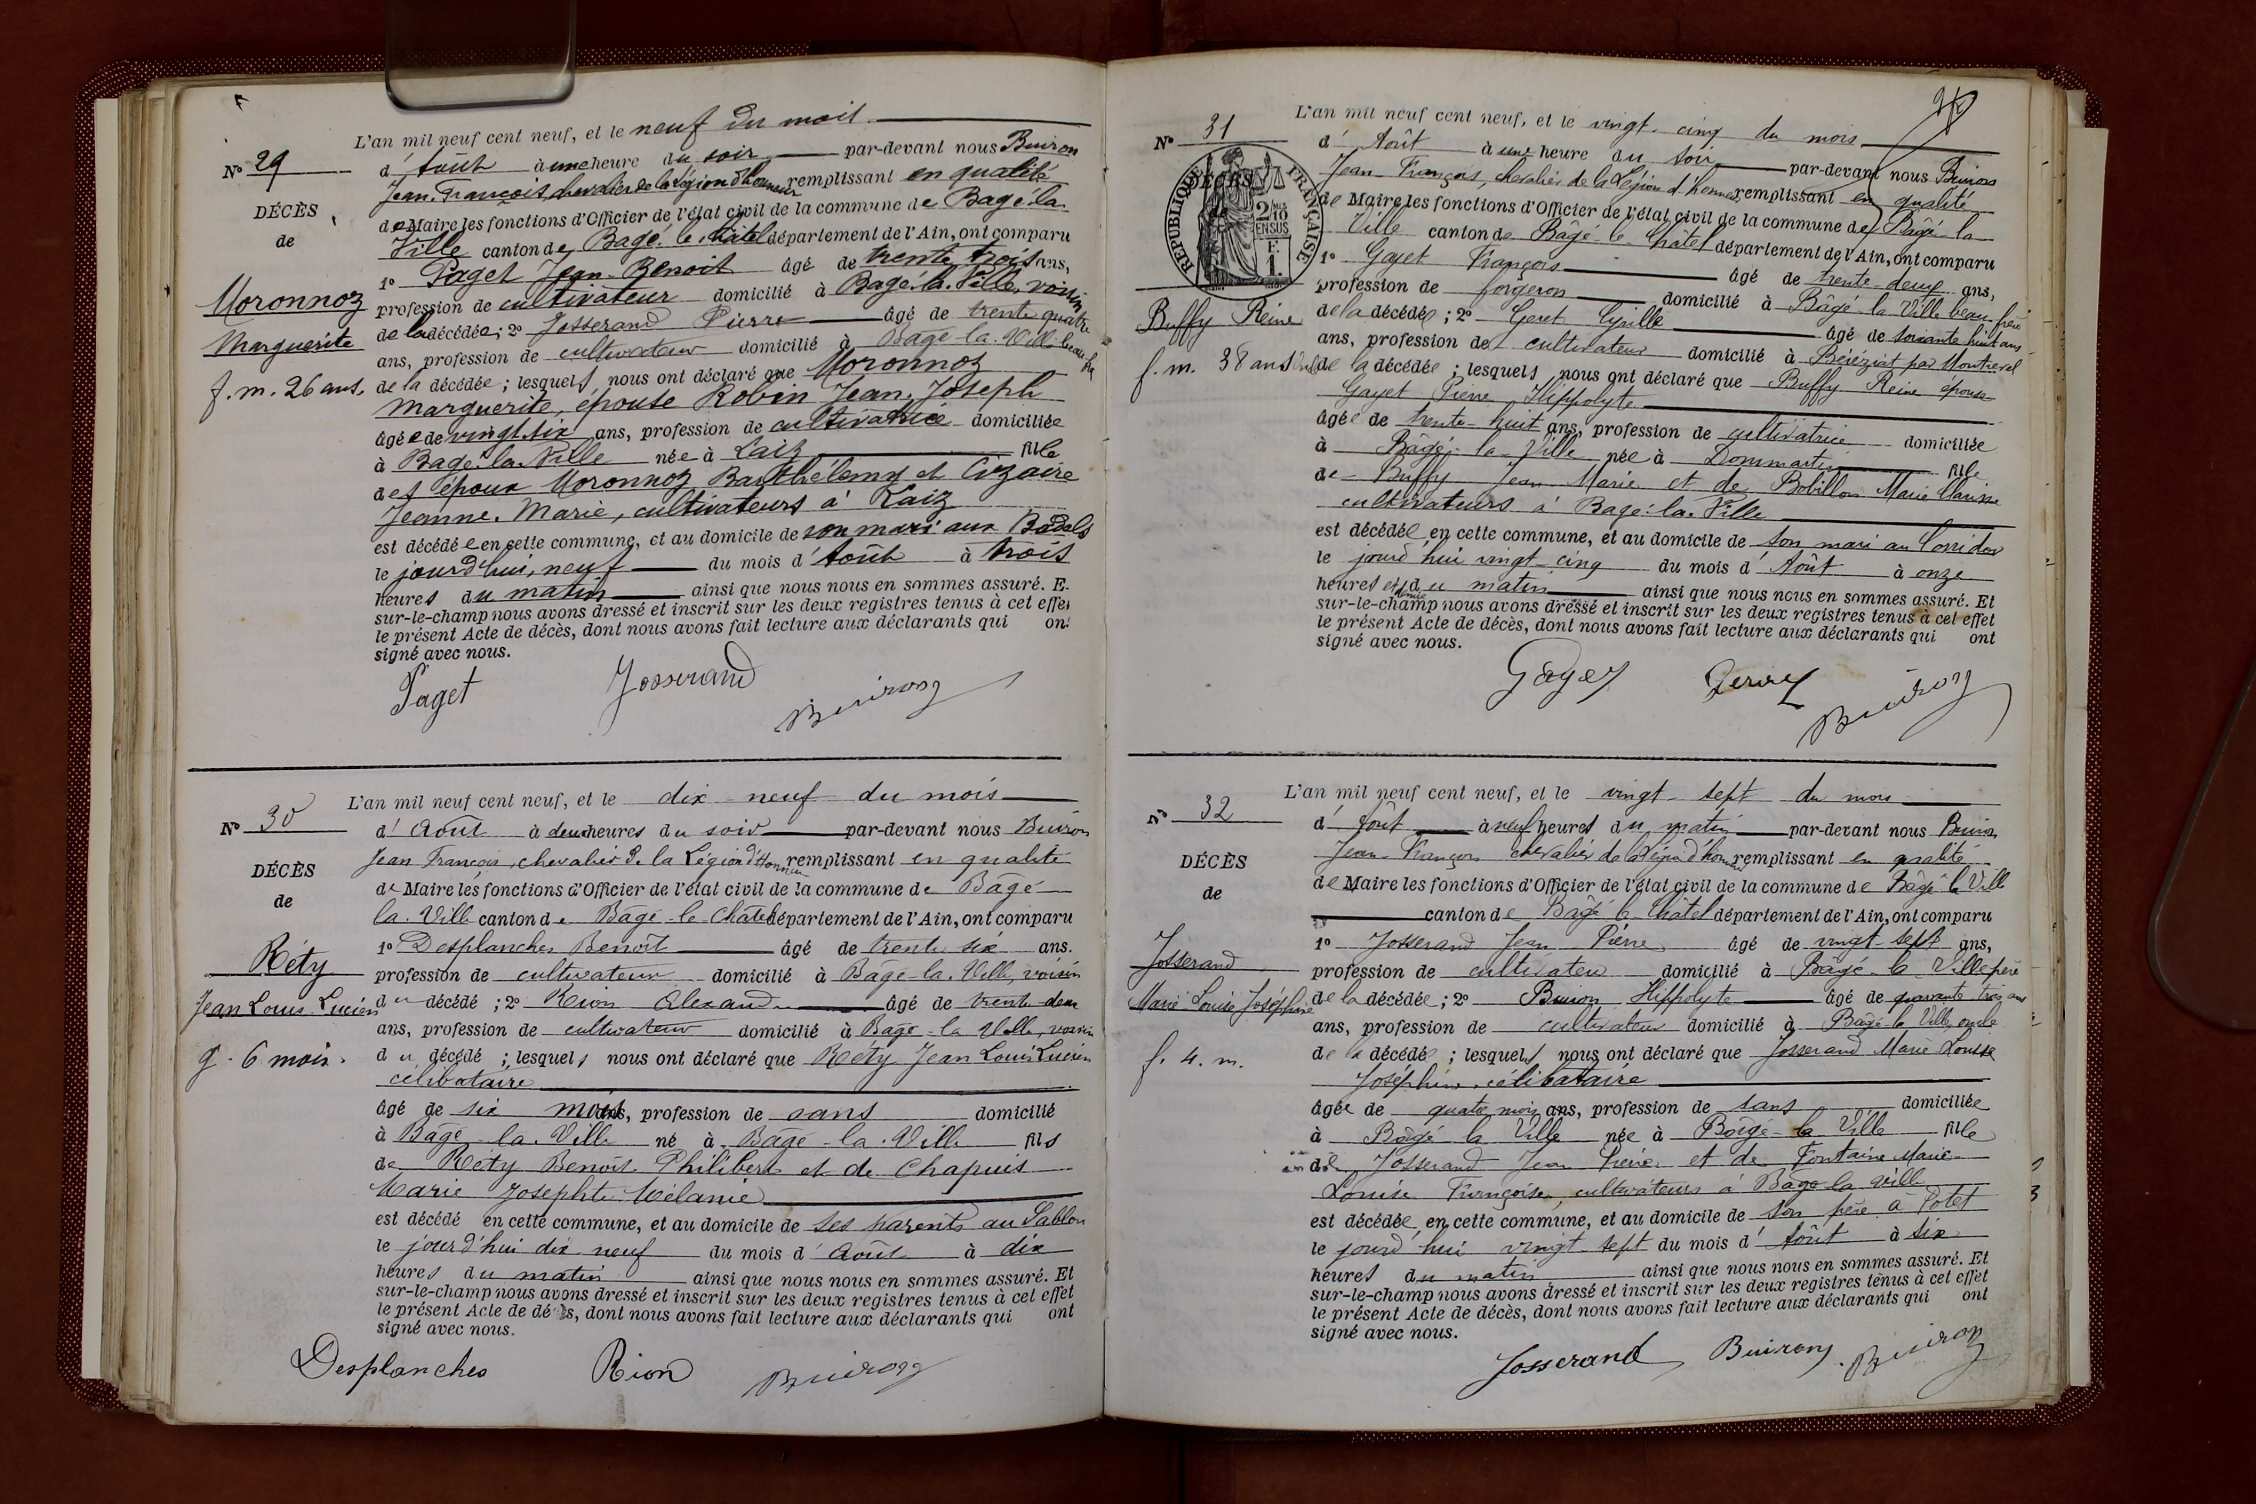 L'an mil neuf cent neuf, et le neuf du mois
N° 29
d'Août à une heure du soir par-devant nous Buiron
Jean François, chevalier de la Légion d'honneur remplissant en qualité
DÉCÈS
de Maire les fonctions d'Officier de l'état civil de la commune de Bagé-la-
de
Ville canton de Bagé-le-Châtel département de l'Ain, ont comparu
1° Paget Jean-Benoit âgé de trente trois ans,
Moronnoz
profession de cultivateur domicilié à Bagé-la-Ville, voisin
Marguerite
de la décédée ; 2° Josserand Pierre âgé de trente quatre
ans, profession de cultivateur domicilié à Bagé-la-Ville beau
f. m. 26 ans.
de la décédée ; lesquels nous ont déclaré que Moronnoz
Marguerite, épouse Robin Jean, Joseph
âgée de vingt six ans, profession de cultivatrice domiciliée
à Bagé-la-Ville née à Laiz fille
des époux Moronnoz Barthélemy et Cizaire
Jeanne-Marie, cultivateurs à Laiz
est décédée en cette commune, et au domicile de son mari aux Badels
le jourd'hui, neuf du mois d'Août à trois
heures du matin ainsi que nous nous en sommes assuré. E
sur-le-champ nous avons dressé et inscrit sur les deux registres tenus à cet effet
le présent Acte de décès, dont nous avons fait lecture aux déclarants qui ont
signé avec nous.
Paget Josserand Buiron
L'an mil neuf cent neuf, et le dix neuf du mois
N° 30
d'Août à deux heures du soir par-devant nous Buiron
Jean François, chevalier de la Légion d'Honneur remplissant en qualité
DÉCÈS
de Maire les fonctions d'Officier de l'état civil de la commune de Bâgé
de
la-Ville canton de Bâgé-le-Châtel département de l'Ain, ont comparu
1° Desplanches Benoît âgé de trente six ans.
Réty
profession de cultivateur domicilié à Bâgé-la-Ville, voisin
Jean Louis Lucien
du décédé ; 2° Rion Alexandre âgé de trente-deux
ans, profession de cultivateur domicilié à Bâgé-la Ville, voisin
g. 6 mois.
du décédé ; lesquels nous ont déclaré que Réty Jean Louis Lucien
célibataire
âgé de six mois ans, profession de sans domicilié
à Bâgé-la-Ville né à Bâgé-la-Ville fils
de Réty Benoît Philibert et de Chapuis
Marie Josephte Mélanie
est décédé en cette commune, et au domicile de ses parents au Sablon
le jourd'hui dix neuf du mois d'Août à dix
heures du matin ainsi que nous nous en sommes assuré. Et
sur-le-champ nous avons dressé et inscrit sur les deux registres tenus à cet effet
le présent Acte de décès, dont nous avons fait lecture aux déclarants qui ont
signé avec nous.
Desplanches Rion Buiron
L'an mil neuf cent neuf, et le vingt-cinq du mois
N° 31
d'Août à une heure du soir par-devant nous Buiron
Jean François, chevalier de la Légion d'honneur remplissant en qualité
DÉCÈS
RÉPUBLIQUE FRANÇAISE
2/10 EN SUS
F. 1.
de Maire les fonctions d'Officier de l'état civil de la commune de Bâgé-la
Ville canton de Bâgé-le-Châtel département de l'Ain, ont comparu
1° Gayet François âgé de trente-deux ans,
profession de forgeron domicilié à Bâgé-la-Ville beau-frère
Buffy Reine
de la décédée ; 2° Geret Cyrille âgé de soixante huit ans
ans, profession de cultivateur domicilié à Béréziat par Montrevel
f. m. 38 ans
de la décédée ; lesquels nous ont déclaré que Buffy Reine épouse
Gayet Pierre Hippolyte
âgée de trente-huit ans, profession de cultivatrice domiciliée
à Bâgé-la-Ville née à Dommartin fille
de Buffy Jean Marie et de Bobillon Marie Clarisse
cultivateurs à Bagé-la-Ville
est décédée en cette commune, et au domicile de son mari au Corridor
le jourd'hui vingt-cinq du mois d'Août à onze
heures et demie du matin ainsi que nous nous en sommes assuré. Et
sur-le-champ nous avons dressé et inscrit sur les deux registres tenus à cet effet
le présent Acte de décès, dont nous avons fait lecture aux déclarants qui ont
signé avec nous.
Gayet Geret Buiron
L'an mil neuf cent neuf, et le vingt-sept du mois
N° 32
d'Août à neuf heures du matin par-devant nous Buiron
Jean-François chevalier de la Légion d'honneur remplissant en qualité
DÉCÈS
de Maire les fonctions d'Officier de l'état civil de la commune de Bâgé-la Ville
de
canton de Bâgé-le-Châtel département de l'Ain, ont comparu
1° Josserand Jean-Pierre âgé de vingt-sept ans,
Josserand
profession de cultivateur domicilié à Bâgé-la-Ville père
Marie-Louise Joséphine
de la décédée ; 2° Buiron Hippolyte âgé de quarante trois ans
ans, profession de cultivateur domicilié à Bâgé-la Ville, oncle
f. 4. m.
de la décédée ; lesquels nous ont déclaré que Josserand Marie Louise
Joséphine, célibataire
âgée de quatre mois ans, profession de sans domiciliée
à Bâgé-la Ville née à Bâgé-la Ville fille
de Josserand Jean Pierre et de Fontaine Marie-
Louise Françoise, cultivateurs à Bâgé-la Ville
est décédée en cette commune, et au domicile de son père à Potet
le jourd'hui vingt-sept du mois d'Août à six
heures du matin ainsi que nous nous en sommes assuré. Et
sur-le-champ nous avons dressé et inscrit sur les deux registres tenus à cet effet
le présent Acte de décès, dont nous avons fait lecture aux déclarants qui ont
signé avec nous.
Josserand Buiron Buiron